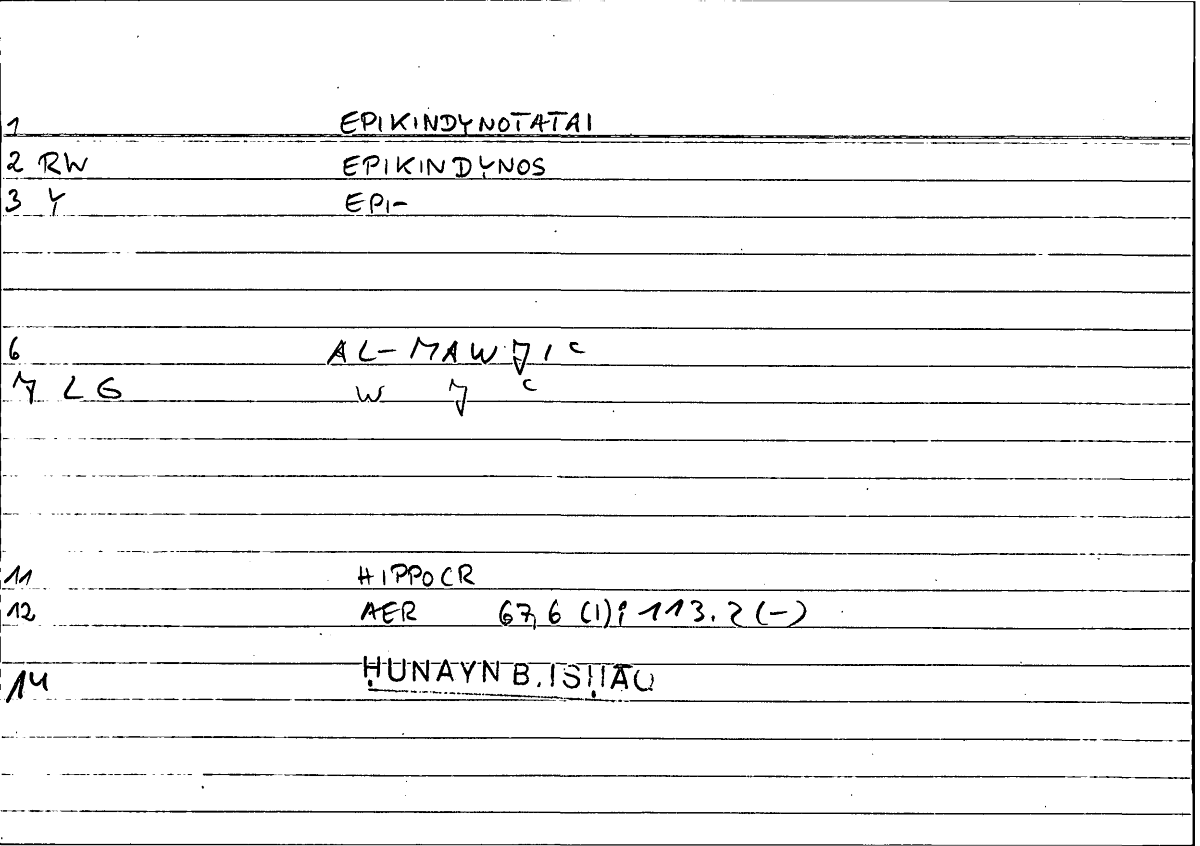 1 EPIKINDYNOTATAI
2 RW EPIKINDYNOS
3 Y EPI-
6 AL-MAWJIʿ
7 LG W J ʿ
11 HIPPOCR
12 AER 67,6 (1); 113.2 (-)
14 ḤUNAYN B. ISḤĀQ